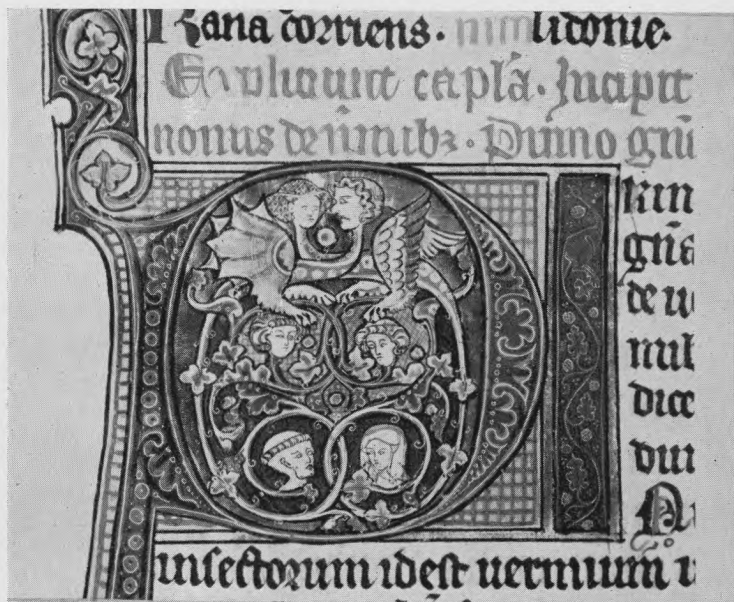 Rana corriens. lidonie.
Expliciunt capl̄a. Incipit
nonus de u̅mibꝫ. Primo gn̄
gn̄a
de u
mil
dice
insectorum idest uermium